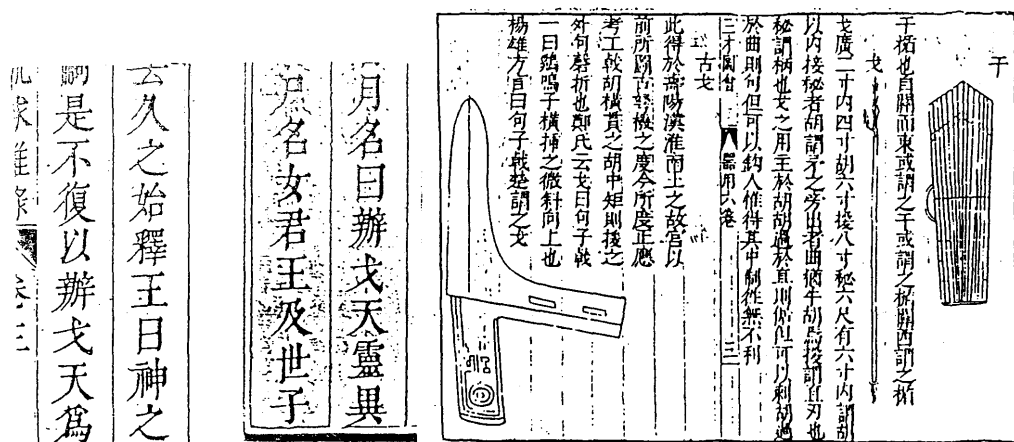 干
干楯也自關而東或謂之干或謂之楯關西謂之楯
戈
戈廣二寸内四寸胡六寸援八寸柲六尺有六寸内謂胡
以内接柲者胡謂矛之旁出者曲猶牛胡焉援謂直刃也
柲謂柄也戈之用主於胡胡過於直則倨但可以刺胡過
於曲則句但可以鈎人惟得其中制徃無不利
三才圖會 器用六卷 三
古戈
此得於壽陽漢淮南王之故宫以
前所圖古之度今所度正應
考工戟胡横貫之胡中矩則援之
外句磬折也鄭氏云戈曰句子戟
一曰鷄鳴子横揷之微斜向上也
楊雄方言曰句子戟楚謂之戈
月名曰辦戈天靈異
君名女君王及世子
去久之始釋王曰神之
嗣是不復以辦戈天爲
琉球雜錄 卷三